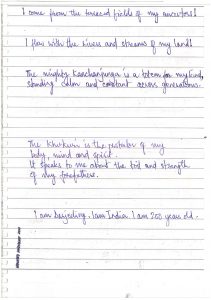 I come from the terraced fields of my ancestors!
I flow with the rivers and streams of my land!
The mighty Kanchanjunga is a totem for my kind,
standing calm and constant across generations.
The Khukuri is the protector of my
body, mind and spirit.
It speaks to me about the and strength
of my forefathers.
I am Darjeeling. I am India. I am 200 years old.